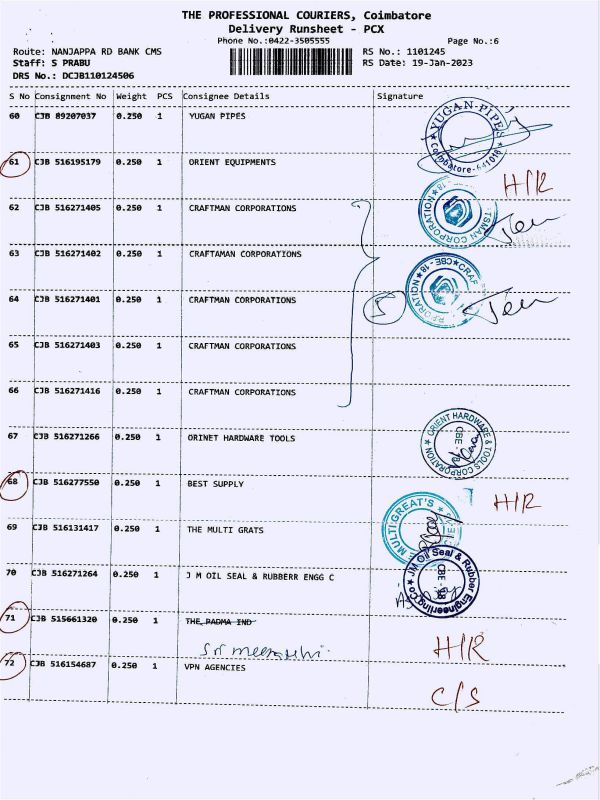 THE PROFESSIONAL COURIERS, Coimbatore
Delivery Runsheet - PCX
Phone No.:0422-3505555 Page No.:6
Route: NANJAPPA RD BANK CMS RS No.: 1101245
Staff: S PRABU RS Date: 19-Jan-2023
DRS No.: DCJB110124506
S No Consignment No Weight PCS Consignee Details Signature
60 CJB 89207037 0.250 1 YUGAN PIPES
YUGAN-PIPES Coimbatore-641018
61 CJB 516195179 0.250 1 ORIENT EQUIPMENTS H/R
62 CJB 516271405 0.250 1 CRAFTMAN CORPORATIONS
TSMAN CORPORATION 18
63 CJB 516271402 0.250 1 CRAFTAMAN CORPORATIONS
CBE-18 CRAF RPORATION
64 CJB 516271401 0.250 1 CRAFTMAN CORPORATIONS 5
65 CJB 516271403 0.250 1 CRAFTMAN CORPORATIONS
66 CJB 516271416 0.250 1 CRAFTMAN CORPORATIONS
67 CJB 516271266 0.250 1 ORINET HARDWARE TOOLS
ORIENT HARDWARE & TOOLS CORPORATION CBE-18
68 CJB 516277550 0.250 1 BEST SUPPLY H/R
69 CJB 516131417 0.250 1 THE MULTI GRATS
MULTI GREAT'S
70 CJB 516271264 0.250 1 J M OIL SEAL & RUBBERR ENGG C
JM Oil Seal & Rubber Engineering Co CBE-18
71 CJB 515661320 0.250 1 THE PADMA IND H/R
72 CJB 516154687 0.250 1 VPN AGENCIES C/S